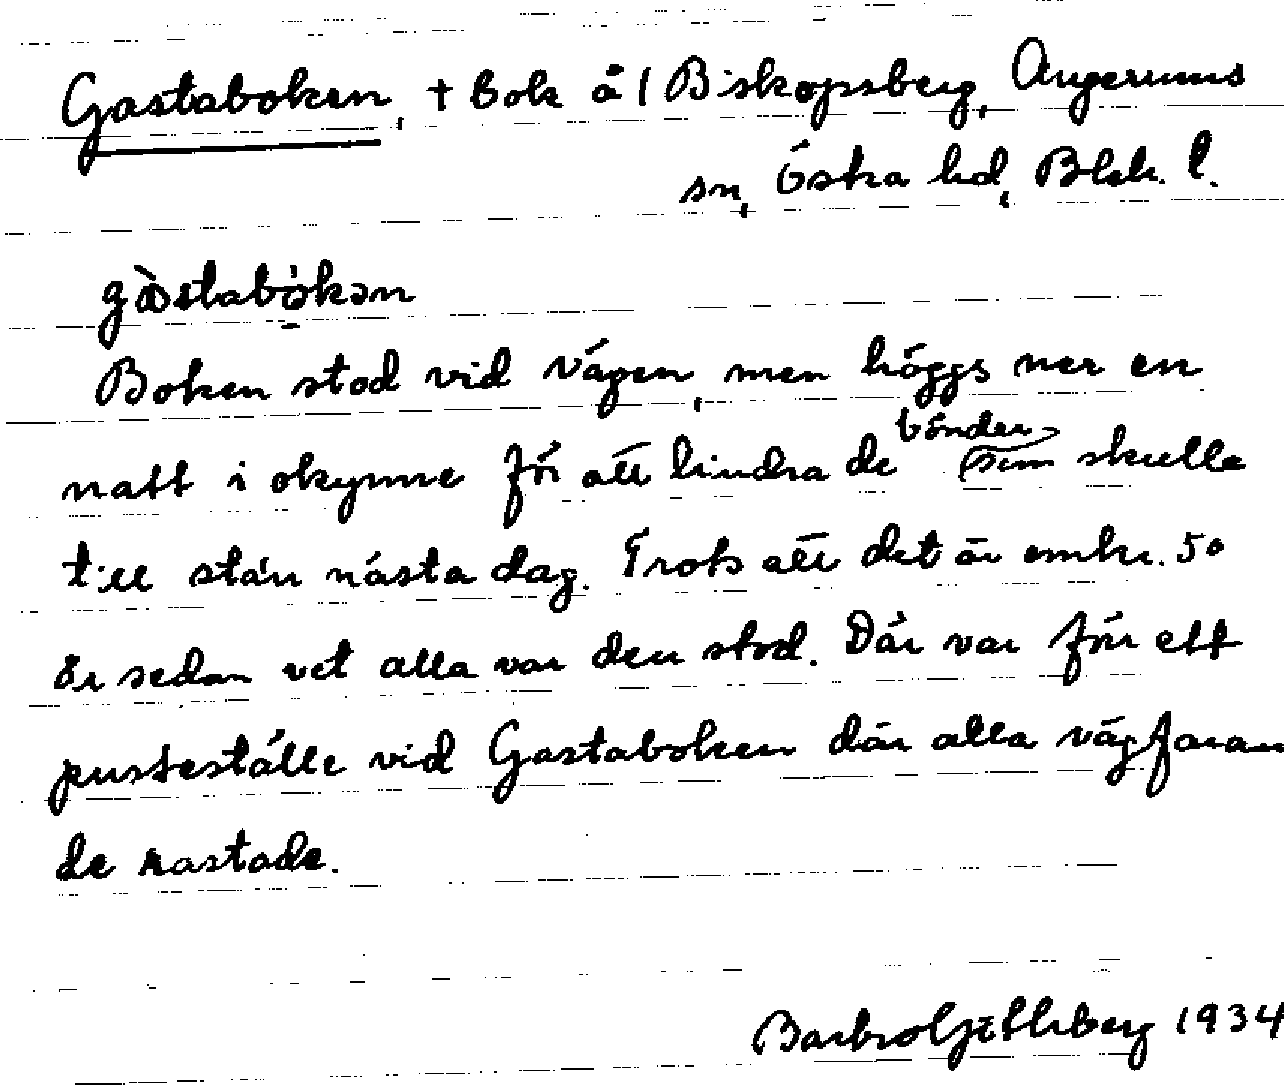 Gastaboken, + bok å 1 Biskopsberg, Augerums
sn, Östra hd, Blek. l.
gàstabòkən
Boken stod vid vägen, men höggs ner en
natt i okynne för att hindra de bönder som skulle
till stán nästa dag. Trots att det är omkr. 50
år sedan vet alla var den stod. Där var förr ett
pusteställe vid Gastaboken där alla vägfaran
de rastade.
1934